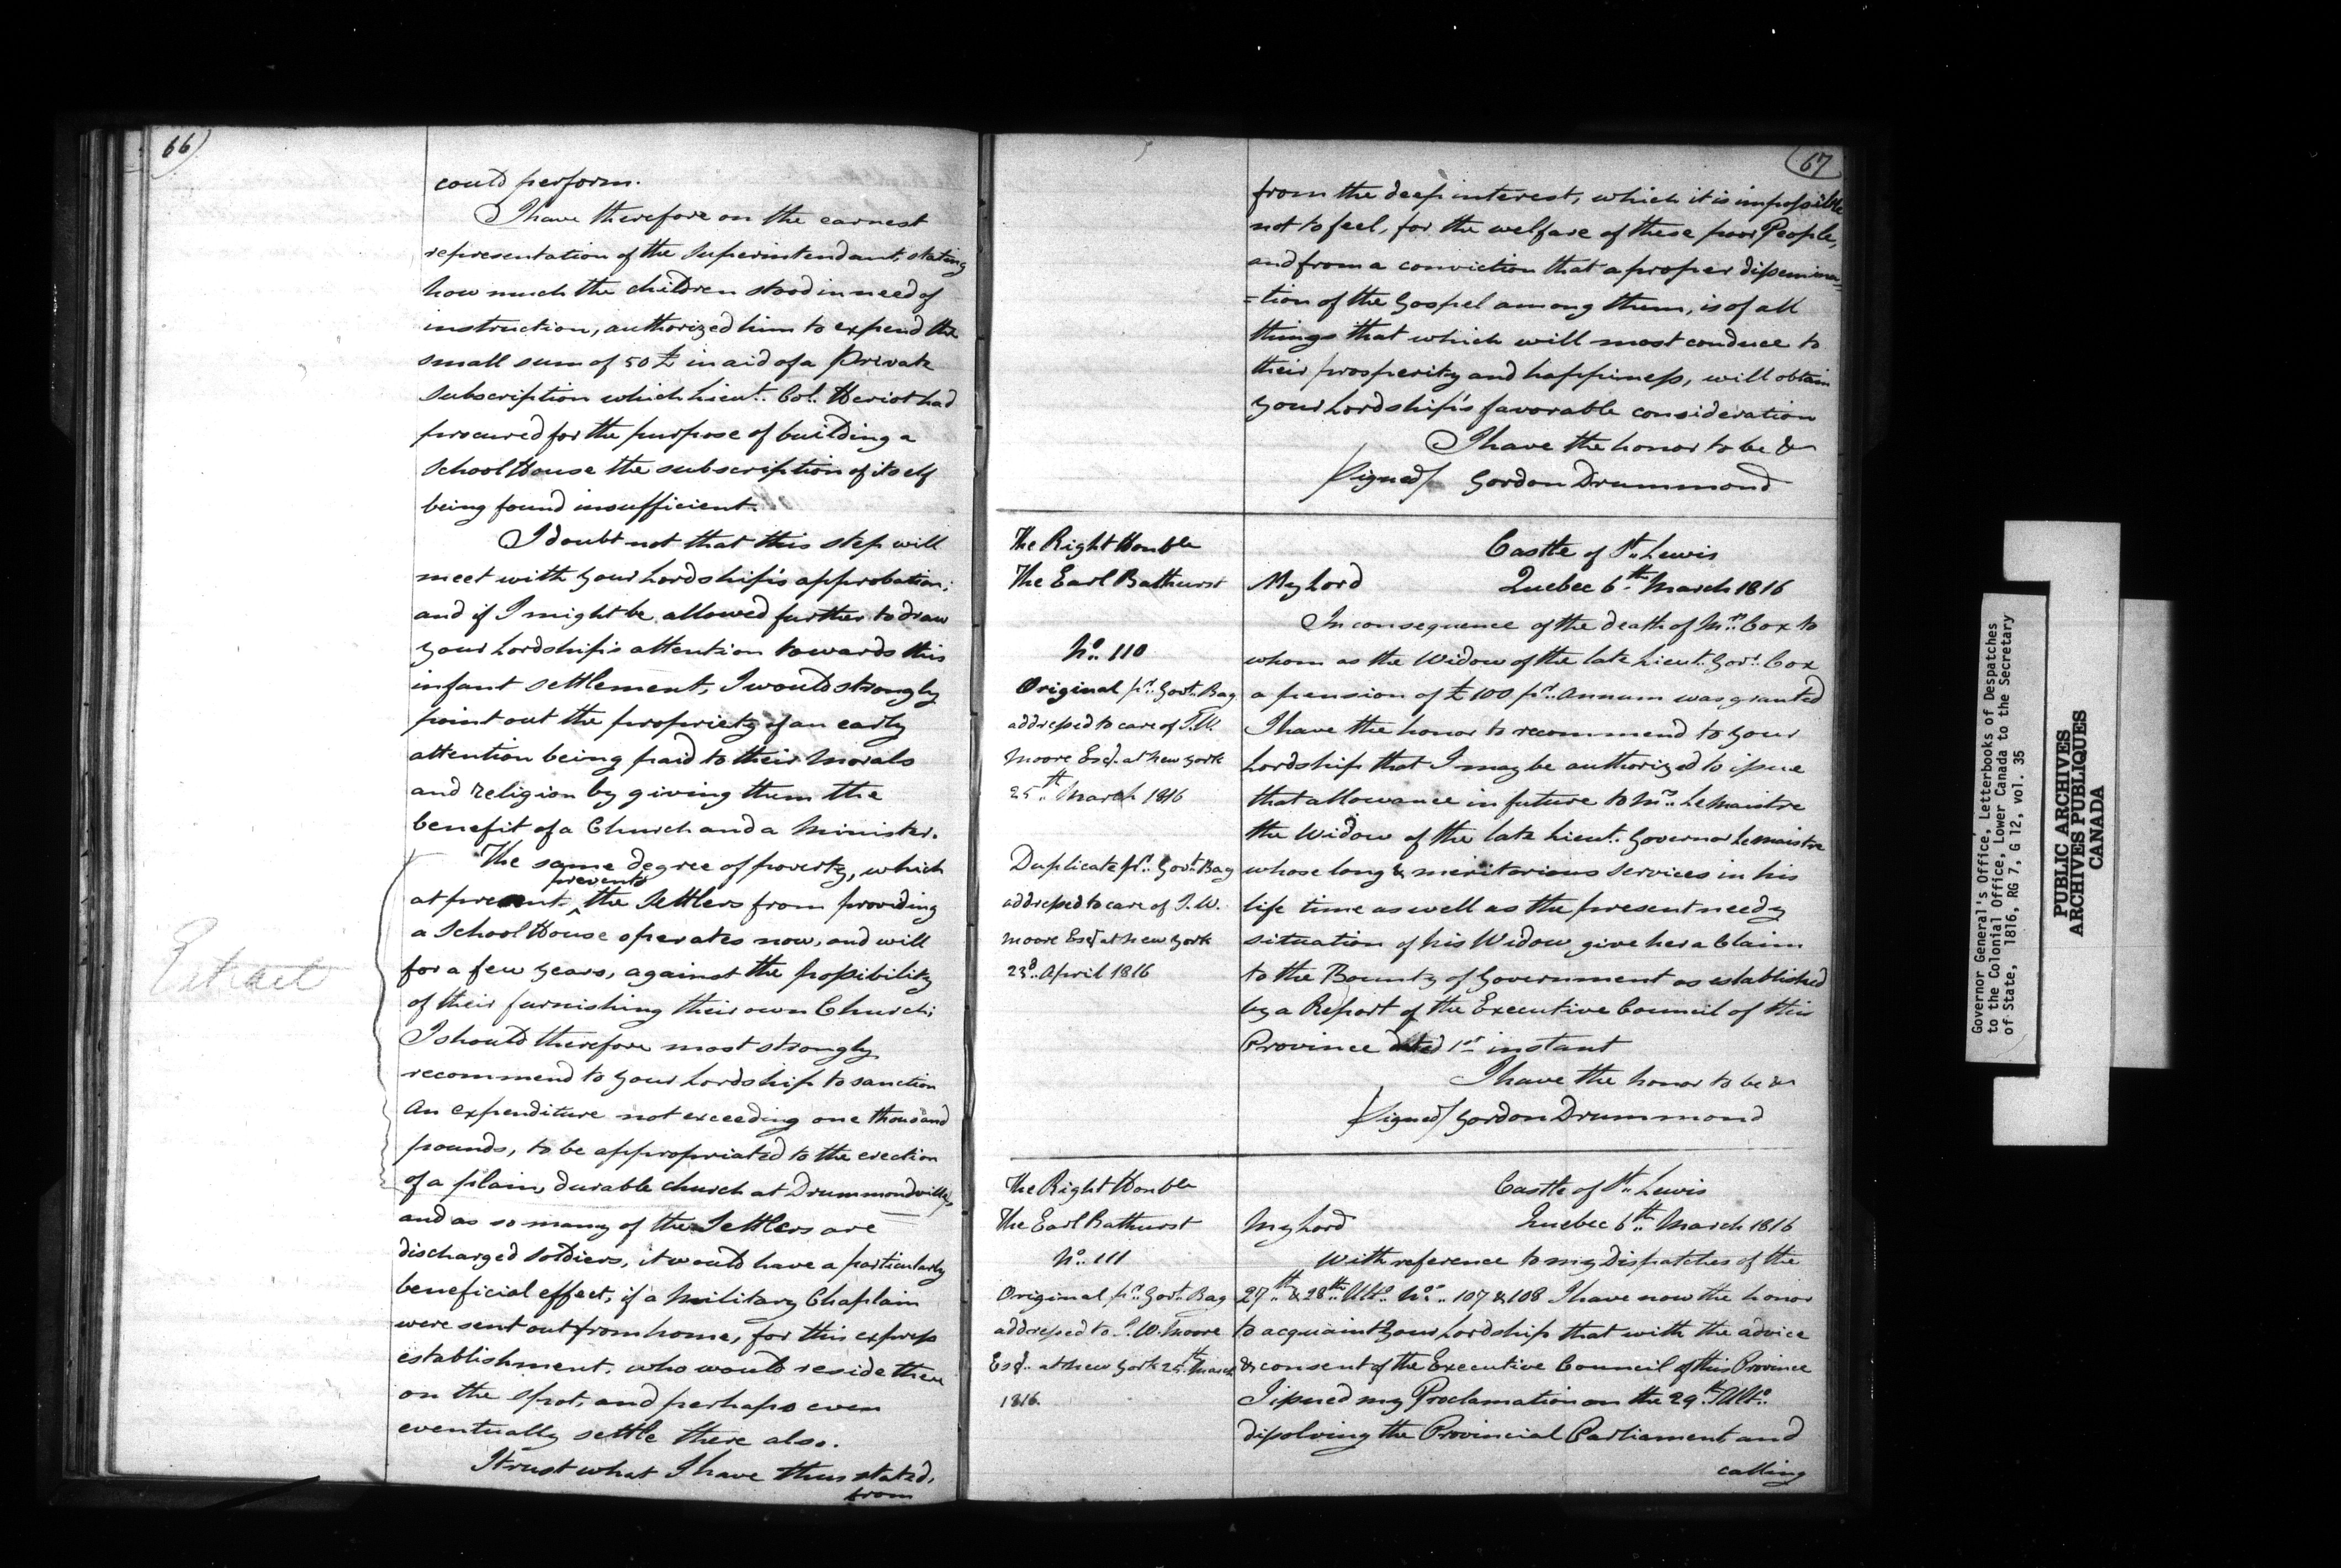 66)
could perform.
I have therefore on the earnest
representation of the Superintendant, stating
how much the children stood in need of
instruction, authorized him to expend the
small sum of 50 £ in aid of a Private
Subscription which Lieut. Col. Heriot had
procured for the purpose of building a
School House the subscription of itself
being found insufficient.
I doubt not that this step will
meet with your Lordship's approbation;
and if I might be allowed further to draw
your Lordship's attention towards this
infant settlement, I would strongly
point out the propriety of an early
attention being paid to their Morals
and religion by giving them the
benefit of a Church and a Minister.
The same degree of poverty, which
at present prevents the Settlers from providing
a School House operates now, and will
for a few years, against the possibility
of their furnishing their own Church;
I should therefore most strongly
recommend to your Lordship to sanction
an expenditure not exceeding one thousand
pounds, to be appropriated to the erection
of a plain, durable church at Drummondville,
and as so many of the Settlers are
discharged soldiers, it would have a particularly
beneficial effect, if a Military Chaplain
were sent out from home, for this express
establishment, who would reside there
on the spot, and perhaps even
eventually settle there also.
I trust what I have thus stated,
from
Extract
(67
from the deep interest, which it is impossible
not to feel, for the welfare of these poor People,
and from a conviction that a proper dissemina=
=tion of the Gospel among them, is of all
things that which will most conduce to
their prosperity and happiness, will obtain
your Lordship's favorable consideration
I have the honor to be &c
/Signed/ Gordon Drummond
The Right Honble
The Earl Bathurst
No. 110
Original pr. Govt. Bag
addressed to care of I.W.
Moore Esqr. at New York
25th. March 1816
Duplicate pr. Govt. Bag
addressed to care of I.W.
Moore Esqr. at New York
23d. April 1816
Castle of St. Lewis
My Lord Quebec 6th. March 1816
In consequence of the death of Mrs. Cox to
whom as the Widow of the late Lieut. Govr. Cox
a pension of £ 100 pr. Annum was granted
I have the honor to recommend to your
Lordship that I may be authorized to issue
that allowance in future to Mrs. LeMaistre
the Widow of the late Lieut. Governor LeMaistre
whose long & meritorious services in his
life time as well as the present needy
situation of his Widow give her a Claim
to the Bounty of Government as established
by a Report of the Executive Council of this
Province dated 1st instant
I have the honor to be &c
/Signed/ Gordon Drummond
The Right Honble
The Earl Bathurst
No. 111
Original pr. Govt. Bag
addressed to I.W. Moore
Esqr. at New York 25th. March
1816.
Castle of St. Lewis
My Lord Quebec 6th. March 1816
With reference to my Dispatches of the
27th. & 28th. Ulto. Nos. 107 & 108 I have now the honor
to acquaint Your Lordship that with the advice
& consent of the Executive Council of this Province
I issued my Proclamation on the 29th. Ulto.
dissolving the Provincial Parliament and
calling
Governor General's Office, Letterbooks of Despatches
to the Colonial Office, Lower Canada to the Secretary
of State, 1816, RG 7, G 12, vol. 35
PUBLIC ARCHIVES
ARCHIVES PUBLIQUES
CANADA